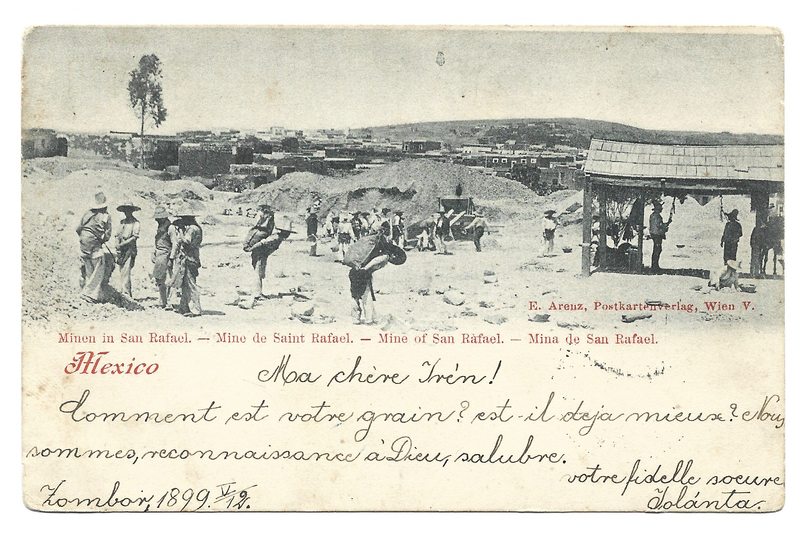 E. Arenz, Postkartenverlag, Wien V.
Minen in San Rafael. — Mine de Saint Rafael. — Mine of San Ràfael. — Mina de San Rafael.
Mexico
Ma chère Irén!
Comment est votre grain? est-il deja mieux? Nous
sommes, reconnaissance à Dieu, salubre.
votre fidelle soeure
Jolánta.
Zombor, 1899 V/12.